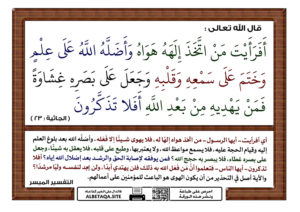 قال الله تعالى :
أَفَرَأَيْتَ مَنِ اتَّخَذَ إِلَٰهَهُ هَوَاهُ وَأَضَلَّهُ اللَّهُ عَلَىٰ عِلْمٍ
وَخَتَمَ عَلَىٰ سَمْعِهِ وَقَلْبِهِ وَجَعَلَ عَلَىٰ بَصَرِهِ غِشَاوَةً
فَمَن يَهْدِيهِ مِن بَعْدِ اللَّهِ أَفَلَا تَذَكَّرُونَ
(الجاثية : ٢٣)
أي أفرأيت - أيها الرسول - من اتخذ هواه إلهًا له، فلا يهوى شيئًا إلا فعله، وأضله الله بعد بلوغ العلم
إليه وقيام الحجة عليه، فلا يسمع مواعظ الله، ولا يعتبر بها، وطبع على قلبه، فلا يعقل به شيئًا، وجعل
على بصره غطاء، فلا يبصر به حجج الله؟ فمن يوفقه لإصابة الحق والرشد بعد إضلال الله إياه؟ أفلا
تذكرون - أيها الناس - فتعلموا أن من فعل الله به ذلك فلن يهتدي أبدًا، ولن يجد لنفسه وليًا مرشدًا؟
والآية أصل في التحذير من أن يكون الهوى هو الباعث للمؤمنين على أعمالهم.
التفسير الميسر
البطاقة
ALBETAQA.SITE